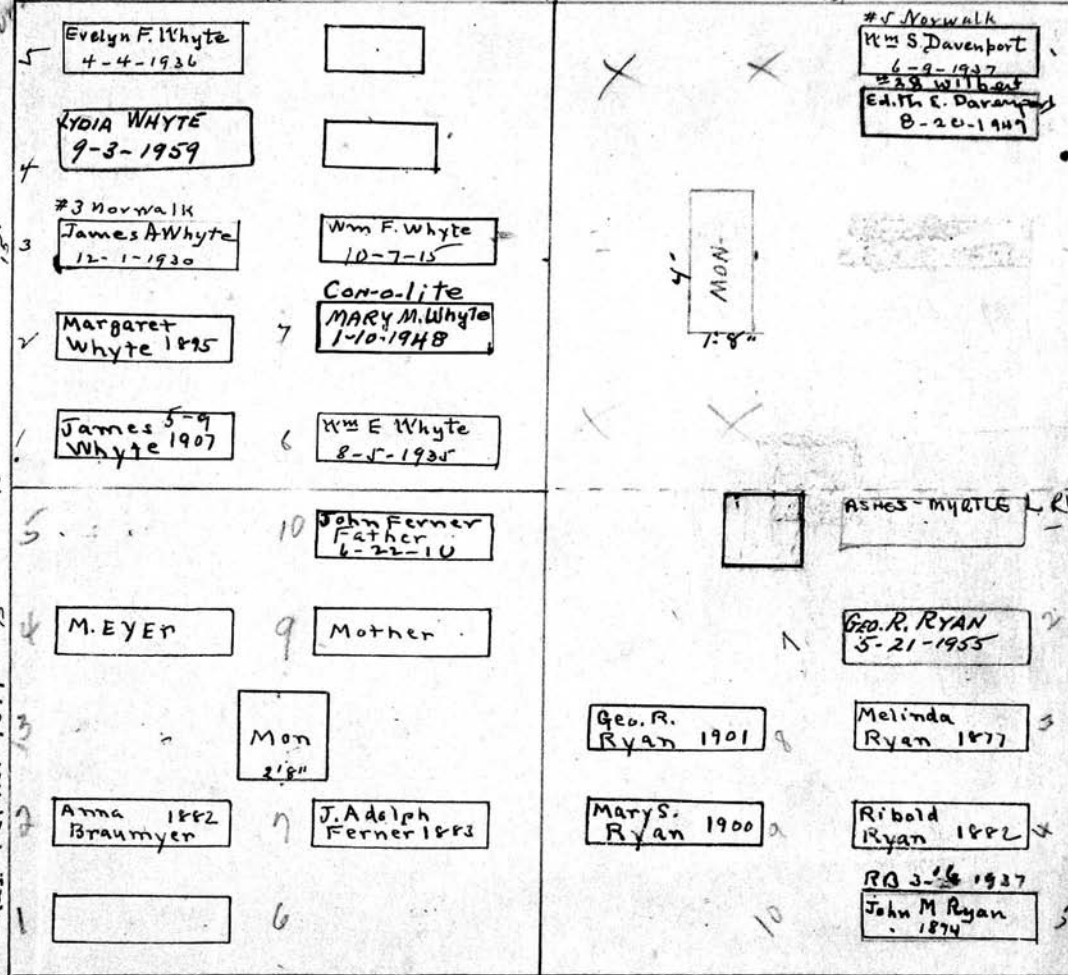 5
Evelyn F. Whyte
4-4-1936
4
LYDIA WHYTE
9-3-1959
#3 Norwalk
3
James A Whyte
12-1-1930
Wm F. Whyte
10-7-15
2
Margaret
Whyte 1895
7
Con-o-lite
MARY M. Whyte
1-10-1948
1
James 5-9
Whyte 1907
6
Wm E Whyte
8-5-1935
#5 Norwalk
Wm S. Davenport
6-9-1937
#38 Wilbert
Edith E. Davenport
8-20-1949
4'
MON-
1'8"
5
10
John Ferner
Father
6-22-10
4
M. EYEr
9
Mother
3
Mon
2'8"
2
Anna 1882
Braumyer
7
J. Adolph
Ferner 1883
1
6
ASHES - MYRTLE L
GEO. R. RYAN
5-21-1955
2
Geo. R.
Ryan 1901
8
Melinda
Ryan 1877
3
Mary S.
Ryan 1900
9
Ribold
Ryan 1882
4
10
RB 1937
John M Ryan
1874
5